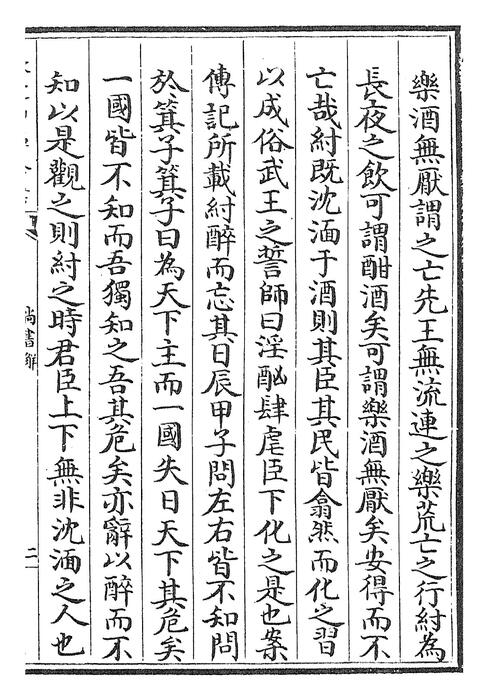 樂酒無厭謂之亡先王無流連之樂荒亡之行紂為
長夜之飲可謂酣酒矣可謂樂酒無厭矣安得而不
亡哉紂既沈湎于酒則其臣其民皆翕然而化之習
以成俗武王之誓師曰淫酗肆虐臣下化之是也案
傳記所載紂醉而忘其日辰甲子問左右皆不知問
於箕子箕子曰為天下主而一國失日天下其危矣
一國皆不知而吾獨知之吾其危矣亦辭以醉而不
知以是觀之則紂之時君臣上下無非沈湎之人也
尚書解
二